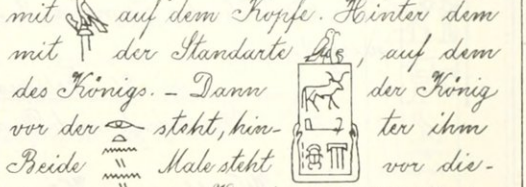 mit auf dem Kopfe. Hinter dem
mit der Standarte , auf dem
des Königs. – Dann der König
vor der steht, hin- ter ihm
Beide Male steht vor die-